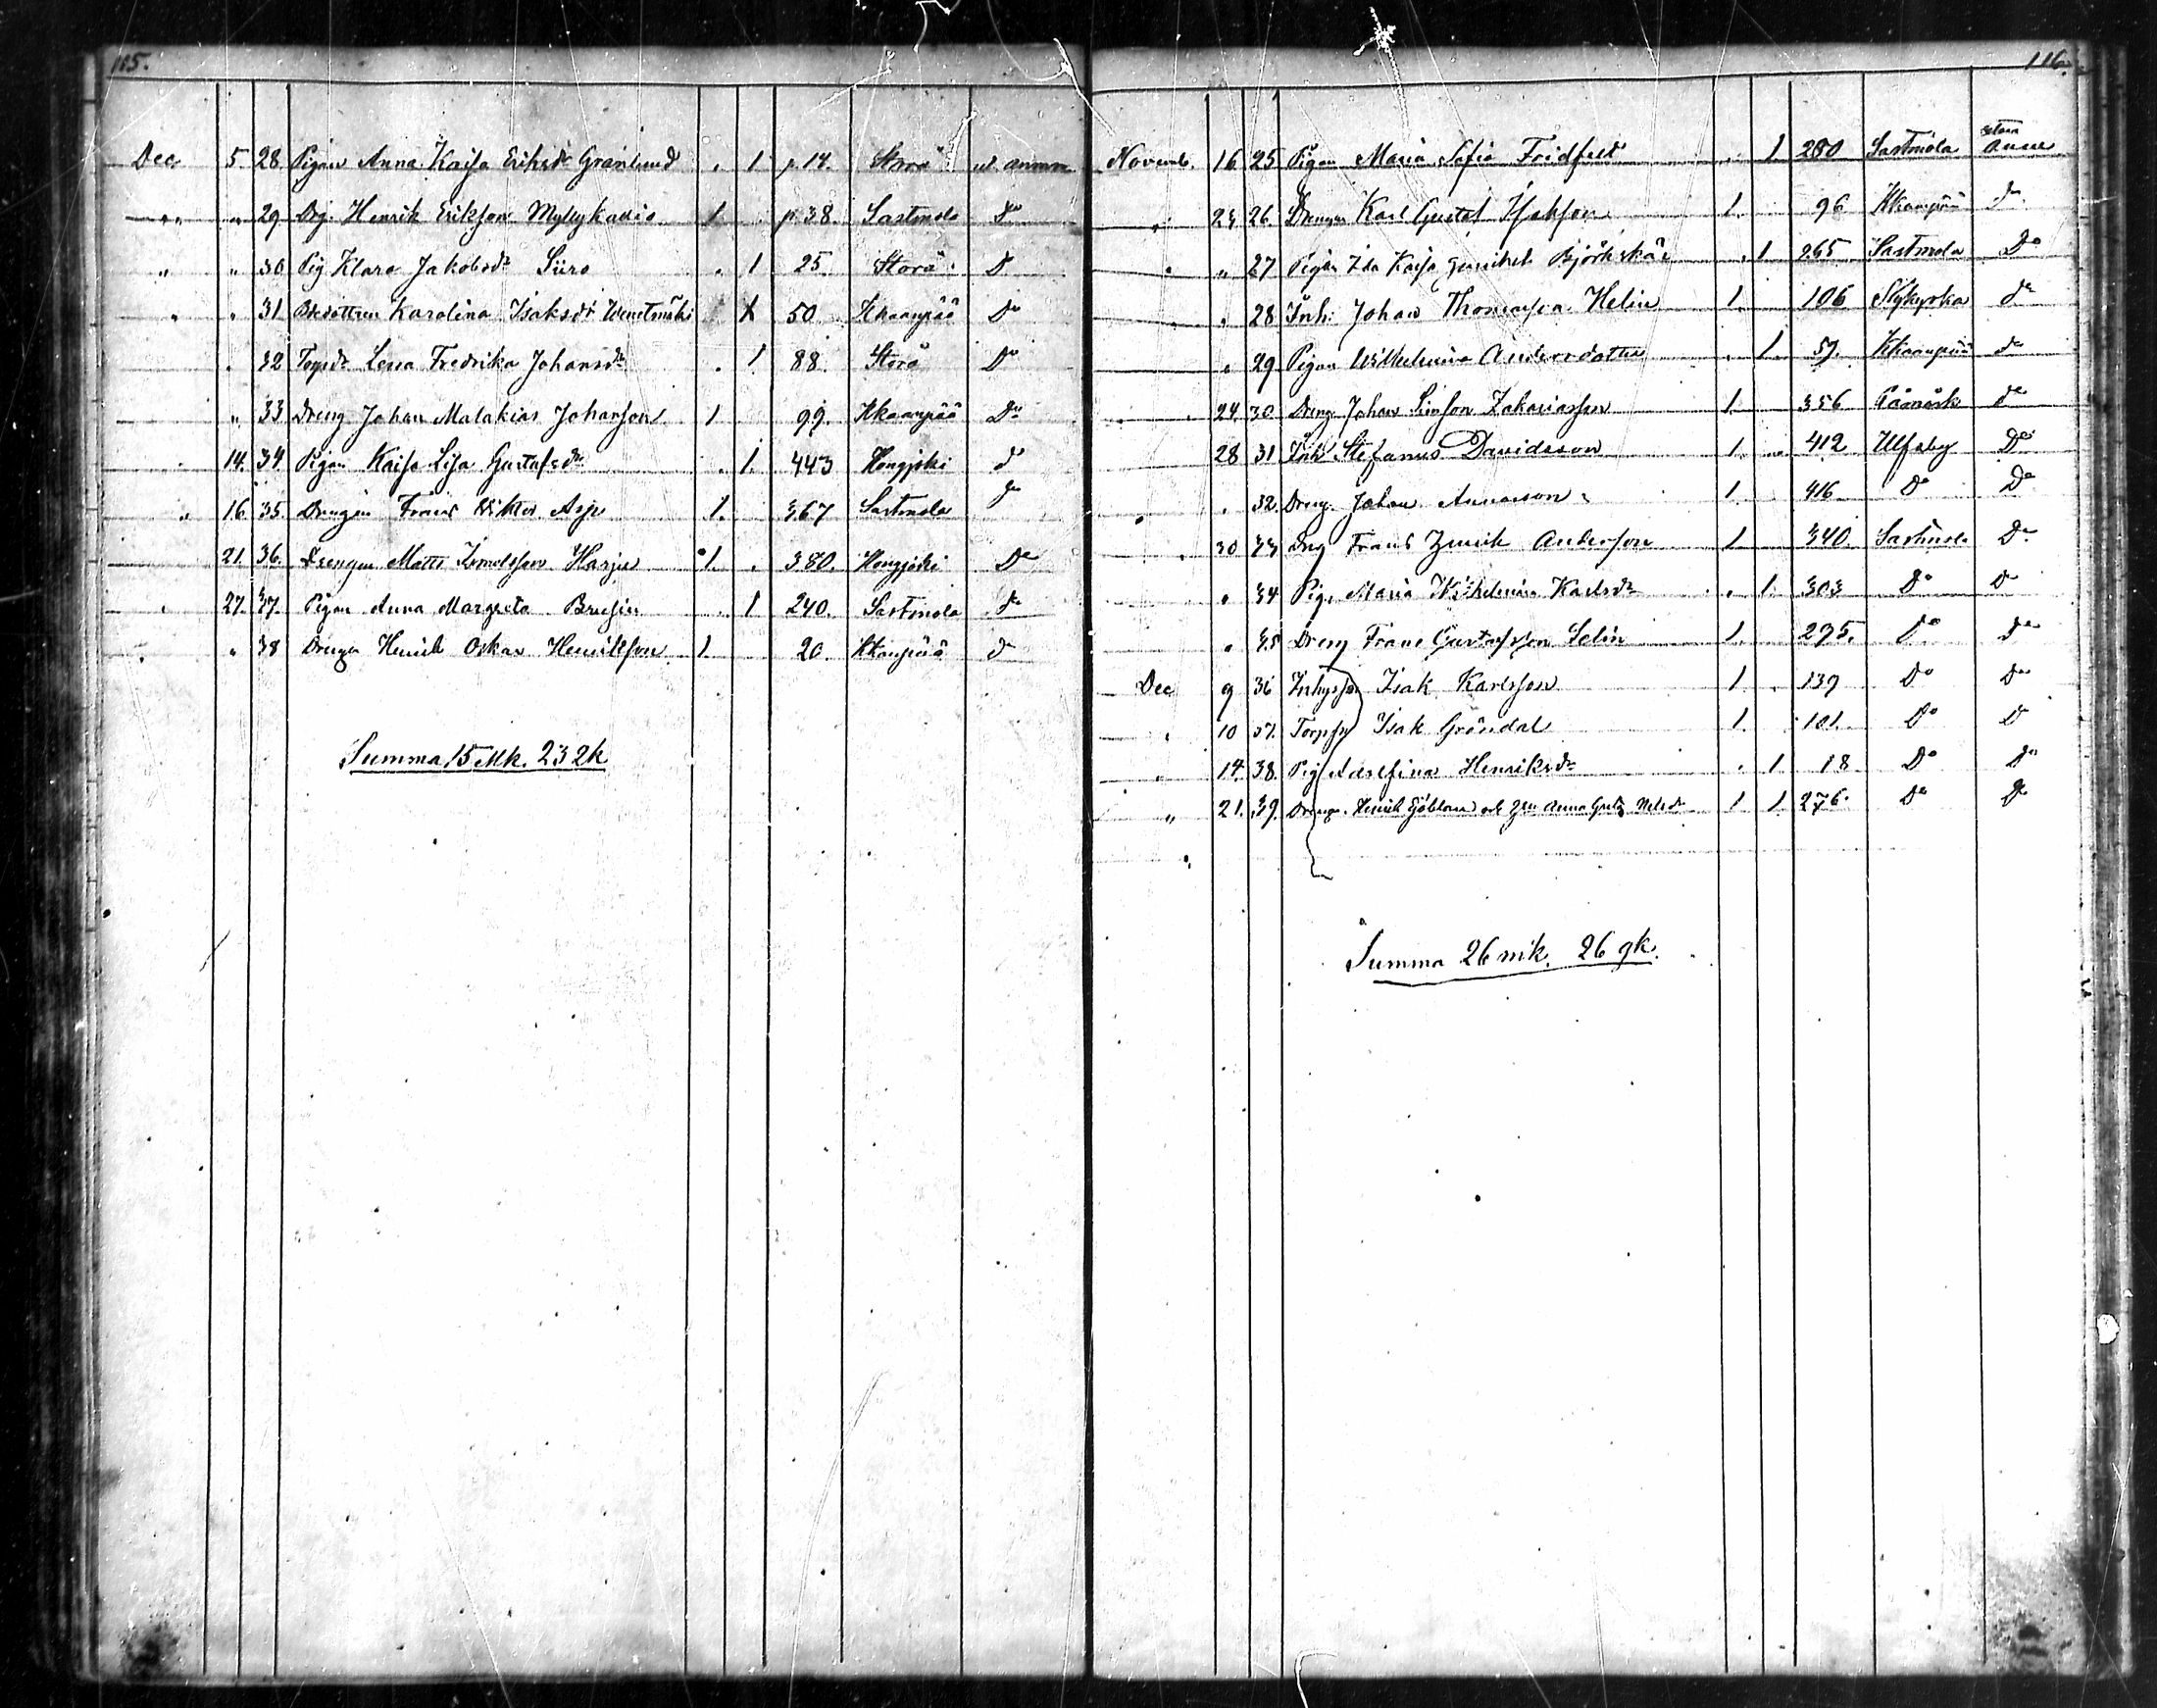 115.
Dec 5. 28. Pigan Anna Kaisa Eriksdr Granlund . 1 p. 14. Storå ut. anmm
" " 29 Drg. Henrik Eriksson Myllykallio 1 . p. 38. Sastmola Do
" " 30 Pig Klara Jakobsdr Siiro . 1 25. Storå D
" " 31 Karolina Isaksdr 1 50 Kkaanpää Do
" 32 Torpdr Lena Fredrika Johansdr . 1 88. Storå Do
" 33 Dreng Johan Malakias Johansson 1 99. Kkaanpää Do
14. 34. Pigan Kaisa Lisa Gustafsdr . 1. 443 Hongojoki d
" 16 35. Drengen Frans Viktor Asp 1. 367 Sastmola do
21. 36. Drengen Matts Harju 1. . 380. Hongojoki Do
27. 37. Pigan Anna Margreta Brusin . 1 240. Sastmola do
" 38 Drengen Henrik Oskar Henriksson 1. 20. Kkanpää d
Summa 15 Mk. 23 Qk
116.
Novemb. 16 25 Pigan Maria Sofia Fridfelt . 1. 280 Sastmola
" 23 26. Drengen Karl Gustaf Isaksson 1. 96 Kkaanpää do
" " 27 Pigan Ida Kaisa Björkskär . 1. 265 Sastmola Do
" 28 Inh: Johan Thomasson Helin 1. 106 do
" 29 Pigan Wilhelmina Andersdotter . 1. 57. Kkaanpää do
24. 30. Dreng Johan Simson Zakariasson 1. 356 do
28 31 Inh Stefanus Davidsson 1. 412 Ulfsby Do
" 32. Dreng. Johan 1. 416 Do Do
30 33 Drg Frans Henrik Anderson 1. 340. Sastmola Do
" 34 Pig. Maria Wilhelmina Karlsdr . 1. 303 Do D
" 35 Dreng Frans Gustafsson Selin 1. 295. Do Do
Dec 9 36 Inhyss Isak Karlsson 1. 139 Do Do
" 10 37. Torpss Isak Gröndal 1. 101. Do D
" 14. 38. Pig Josefina Henriksdr . 1 18 Do Do
" 21. 39. Drengen Henrik och Anna Nilsdr 1 1 276. Do Do
Summa 26 mk. 26 qk.